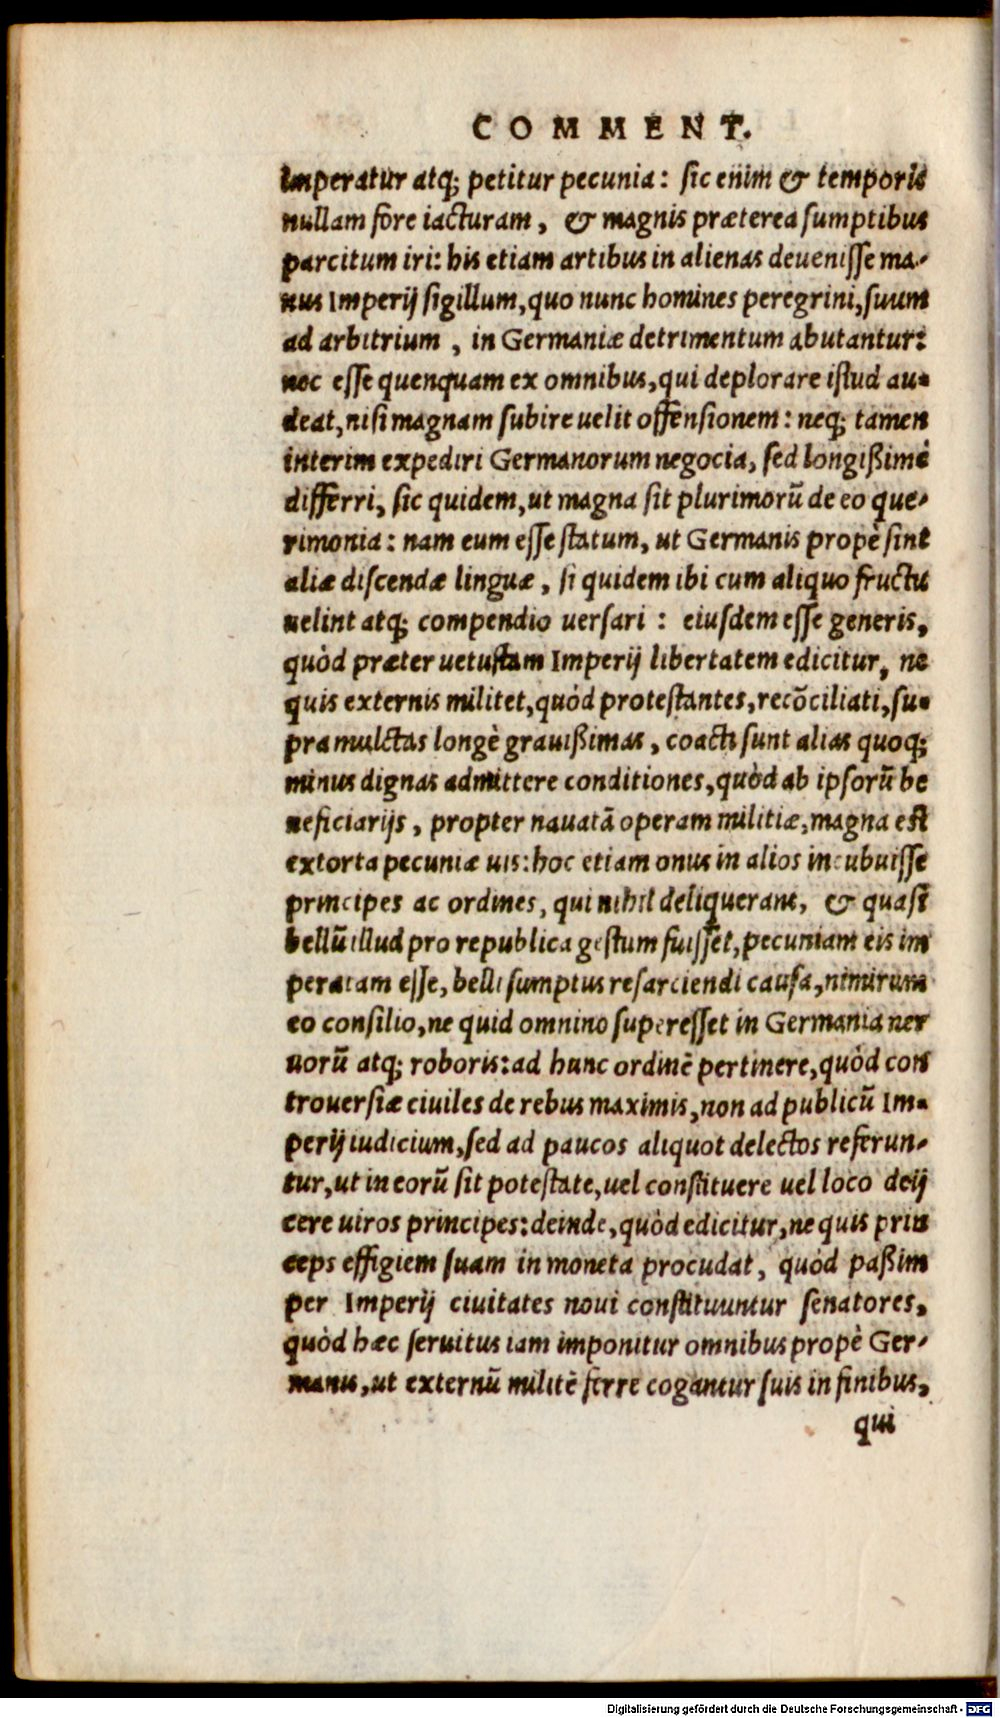 COMMENT.
imperatur atq; petitur pecunia: sic enim & temporis
nullam fore iacturam, & magnis præterea sumptibus
parcitum iri: his etiam artibus in alienas deuenisse ma-
nus Imperij sigillum, quo nunc homines peregrini, suum
ad arbitrium, in Germaniæ detrimentum abutantur:
nec esse quenquam ex omnibus, qui deplorare istud au-
deat, nisi magnam subire uelit offensionem: neq; tamen
interim expediri Germanorum negocia, sed longißimè
differri, sic quidem, ut magna sit plurimorũ de eo que-
rimonia: nam eum esse statum, ut Germanis propè sint
aliæ discendæ linguæ, si quidem ibi cum aliquo fructu
uelint atq; compendio uersari: eiusdem esse generis,
quòd præter uetustam Imperij libertatem edicitur, ne
quis externis militet, quòd protestantes, recõciliati, su-
pra mulctas longè grauißimas, coacti sunt alias quoq;
minus dignas admittere conditiones, quòd ab ipsorũ be
neficiarijs, propter nauatã operam militiæ, magna est
extorta pecuniæ uis: hoc etiam onus in alios incubuisse
principes ac ordines, qui nihil deliquerant, & quasi
bellũ illud pro republica gestum fuisset, pecuniam eis im
peratam esse, belli sumptus resarciendi causa, nimirum
eo consilio, ne quid omnino superesset in Germania ner
uorũ atq; roboris: ad hunc ordinẽ pertinere, quòd con
trouersiæ ciuiles de rebus maximis, non ad publicũ Im-
perij iudicium, sed ad paucos aliquot delectos referun-
tur, ut in eorũ sit potestate, uel constituere uel loco deij
cere uiros principes: deinde, quòd edicitur, ne quis prin
ceps effigiem suam in moneta procudat, quòd paßim
per Imperij ciuitates noui constituuntur senatores,
quòd hæc seruitus iam imponitur omnibus propè Ger-
manis, ut externũ militẽ ferre cogantur suis in finibus,
qui
Digitalisierung gefördert durch die Deutsche Forschungsgemeinschaft - DFG